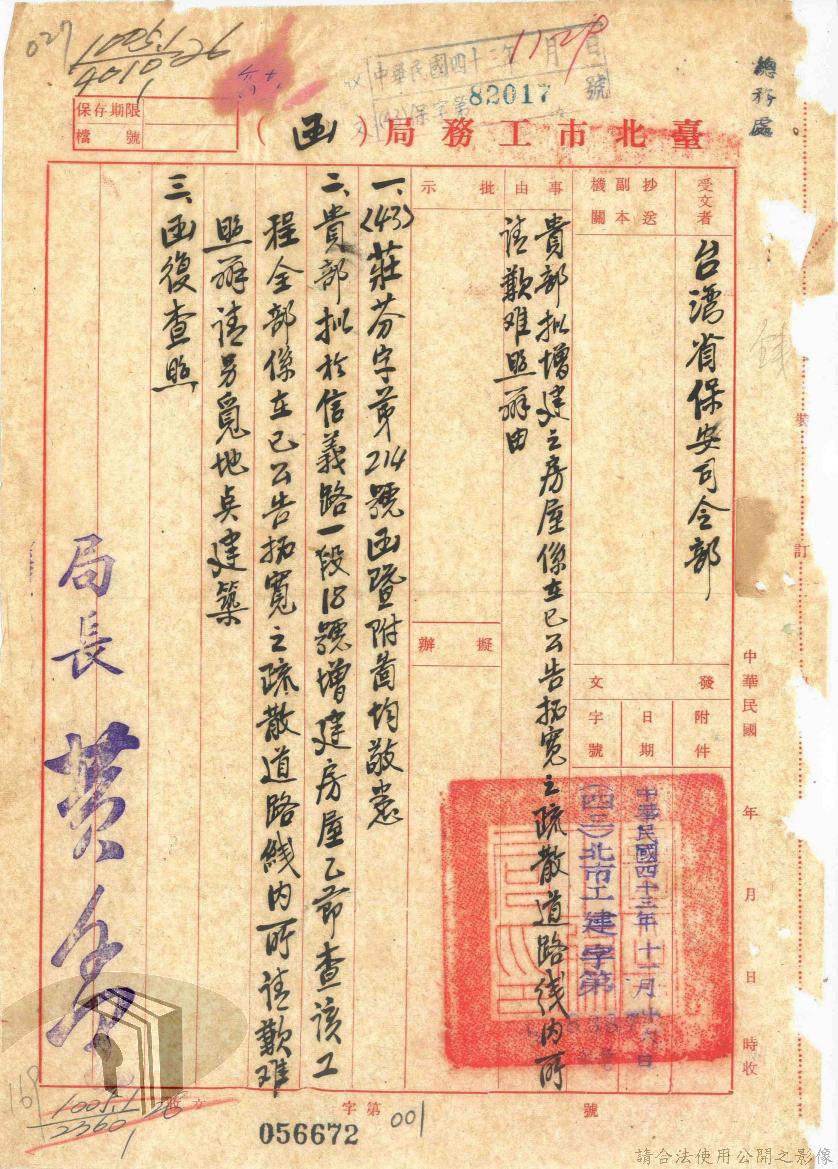 027
1005.1/26
401072
1
總務處
中華民國四十三年11月29日
82017號
(43)保字第
保存期限
檔號
臺北市工務局(函)
受文者
台灣省保安司令部
抄送
副本
機關
事由
貴部拟增建之房屋係在已公告拓寬之疏散道路线內所
請歉难照辦由
批示
擬辦
發文
附件
日期
中華民國四十三年十一月十六日
字號
(四三)北市工建字第
號
一、(43)莊芬字第214號函暨附圖均敬悉
二、貴部拟於信義路一段18號增建房屋乙節查該工
程全部係在已公告拓寬之疏散道路线內所請歉难
照辦請另覓地点建築
三、函復查照
局長
裝
訂
中華民國 年 月 日 時收
字第 號
001
056672
168
1005.1/26
2360
1
請合法使用公開之影像